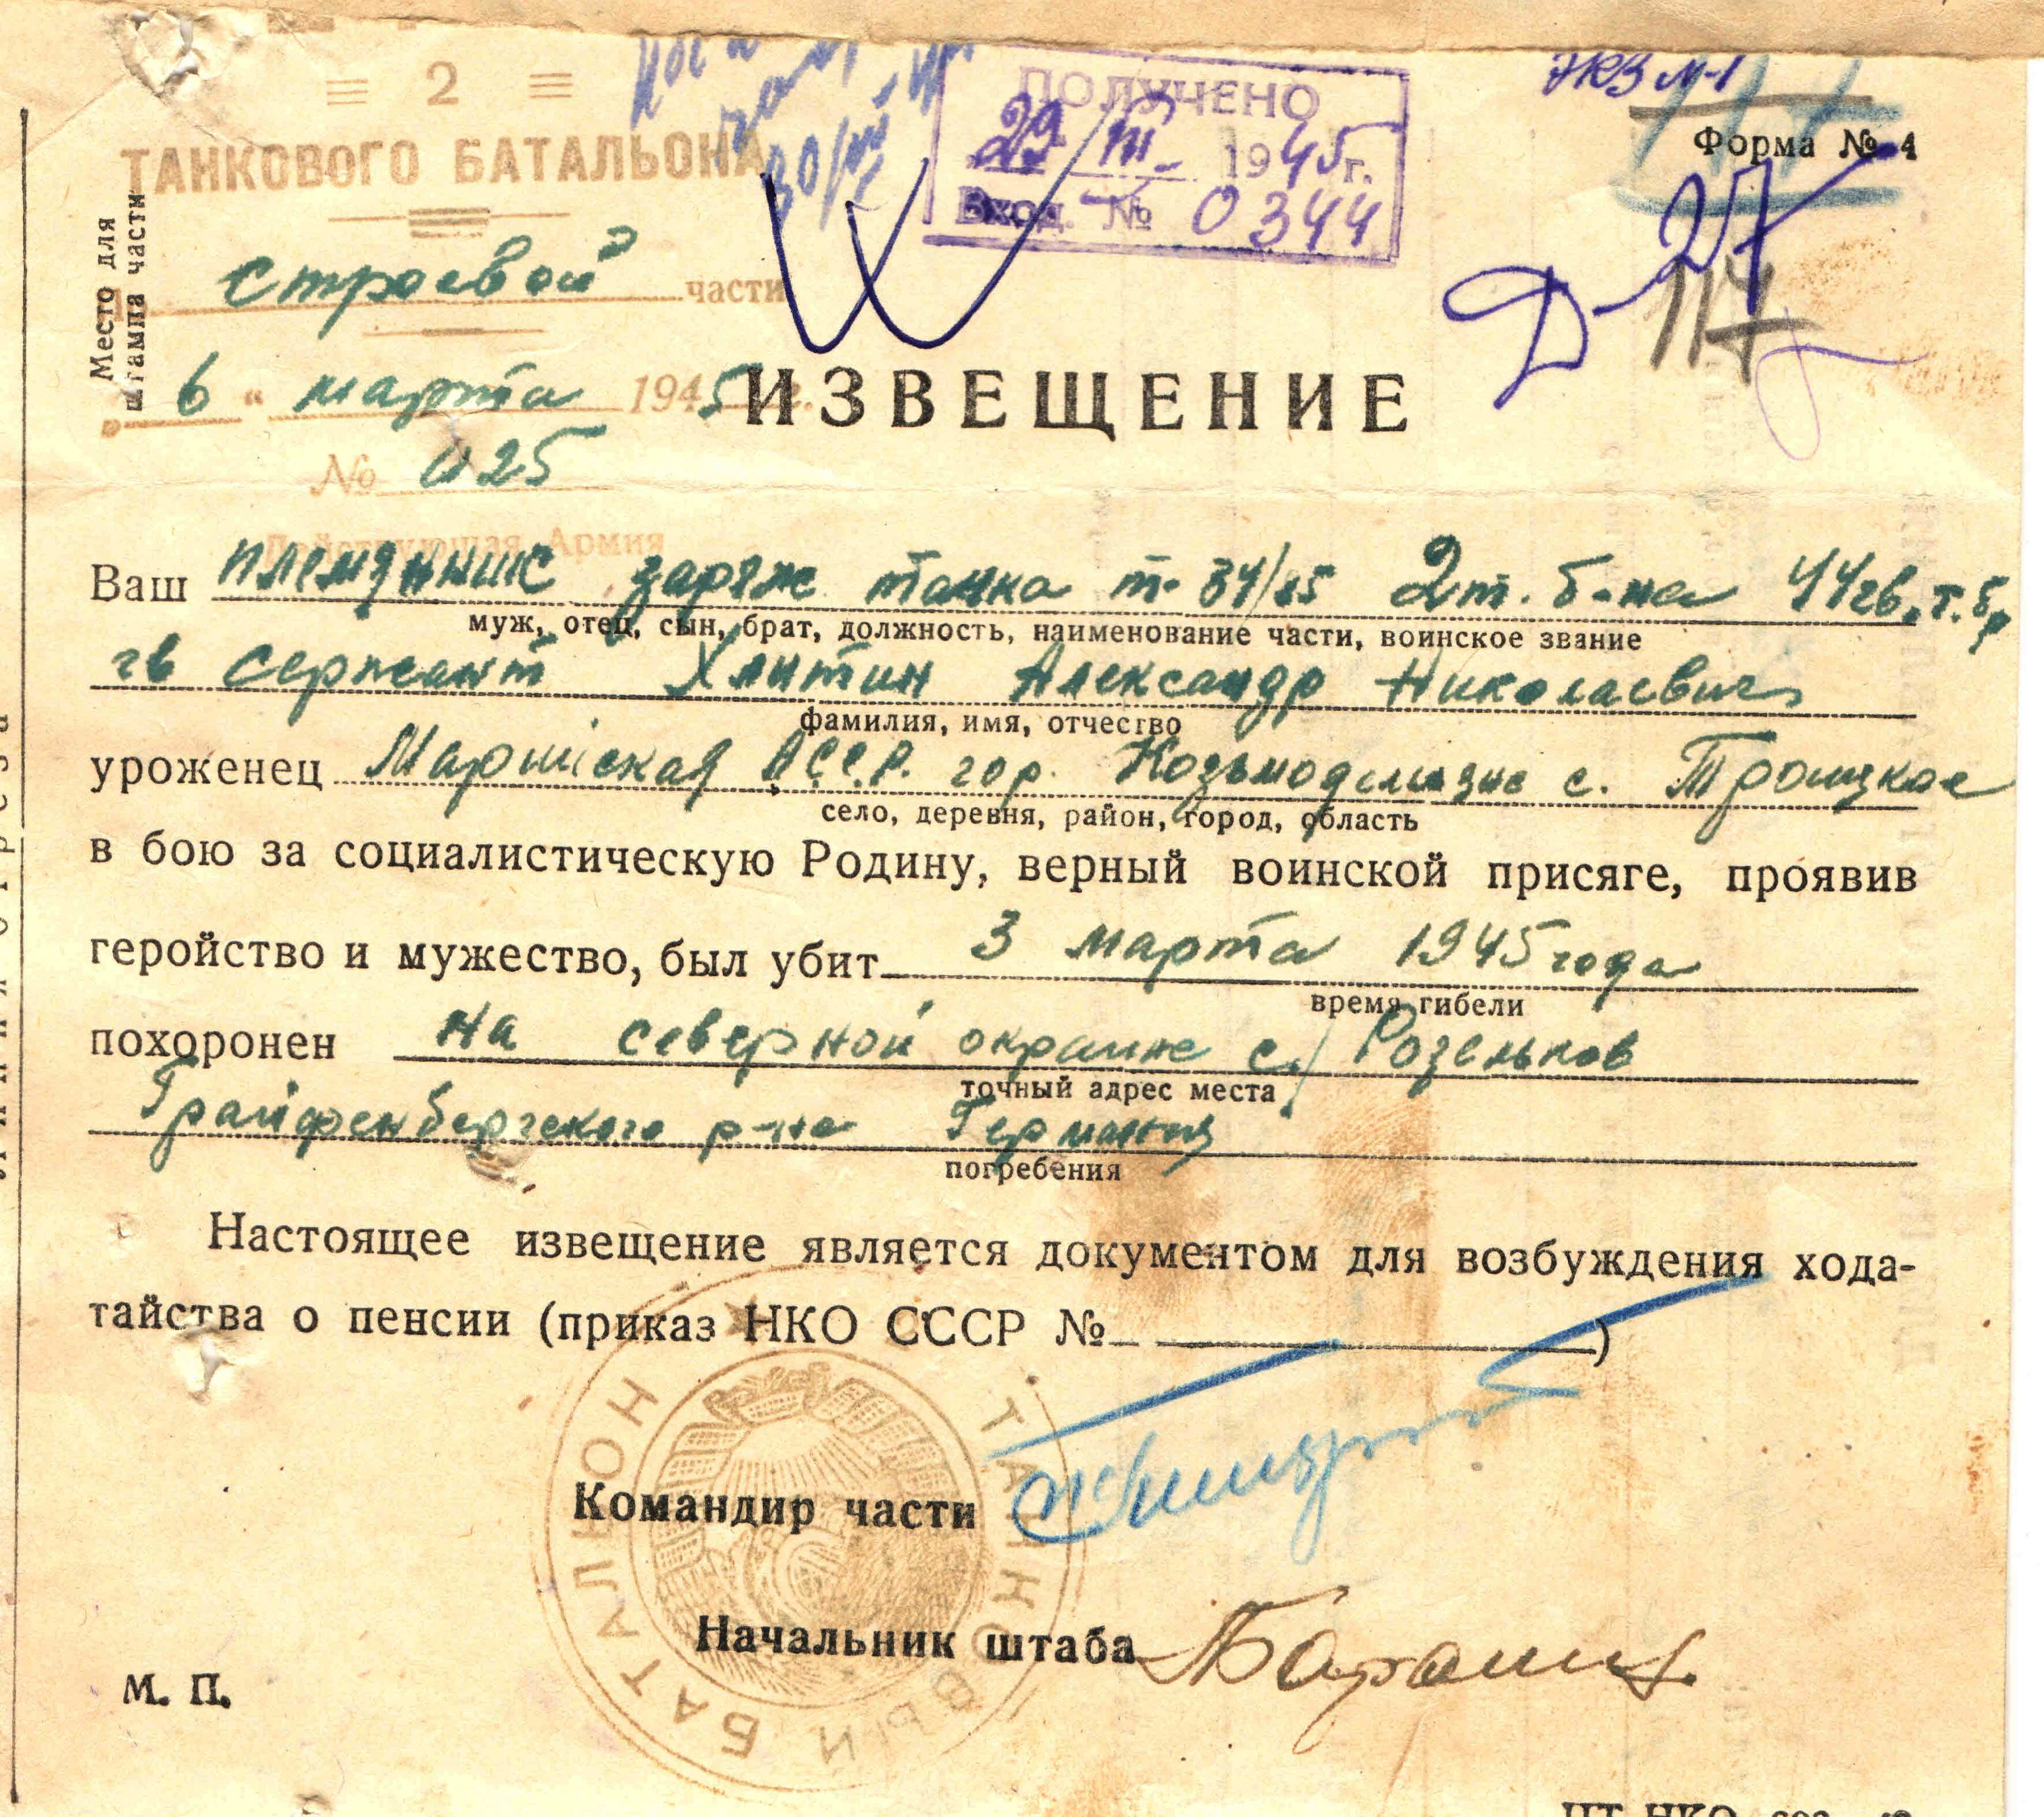 = 2 =
ТАНКОВОГО БАТАЛЬОНА
строевой части
6 " марта 1945
№ 025
Действующая Армия
Место для
штампа части
ПОЛУЧЕНО
29 III 1945 г.
Вход. № 0344
Форма № 4
Д-27
117
ИЗВЕЩЕНИЕ
Ваш племянник заряж танка т-34/85 2 т. б-на 44 гв. т. бр
муж, отец, сын, брат, должность, наименование части, воинское звание
гв сержант Хлитин Александр Николаевич
фамилия, имя, отчество
уроженец Марийская АССР. гор. Козьмодемьянс с. Троицкое
село, деревня, район, город, область
в бою за социалистическую Родину, верный воинской присяге, проявив
геройство и мужество, был убит 3 марта 1945 года
время гибели
похоронен на северной окраине с. Розеньков
точный адрес места
Грайфенбергского р-на Германия
погребения
Настоящее извещение является документом для возбуждения хода-
тайства о пенсии (приказ НКО СССР № )
Командир части
Начальник штаба
М. П.
ТАНКОВЫЙ БАТАЛЬОН